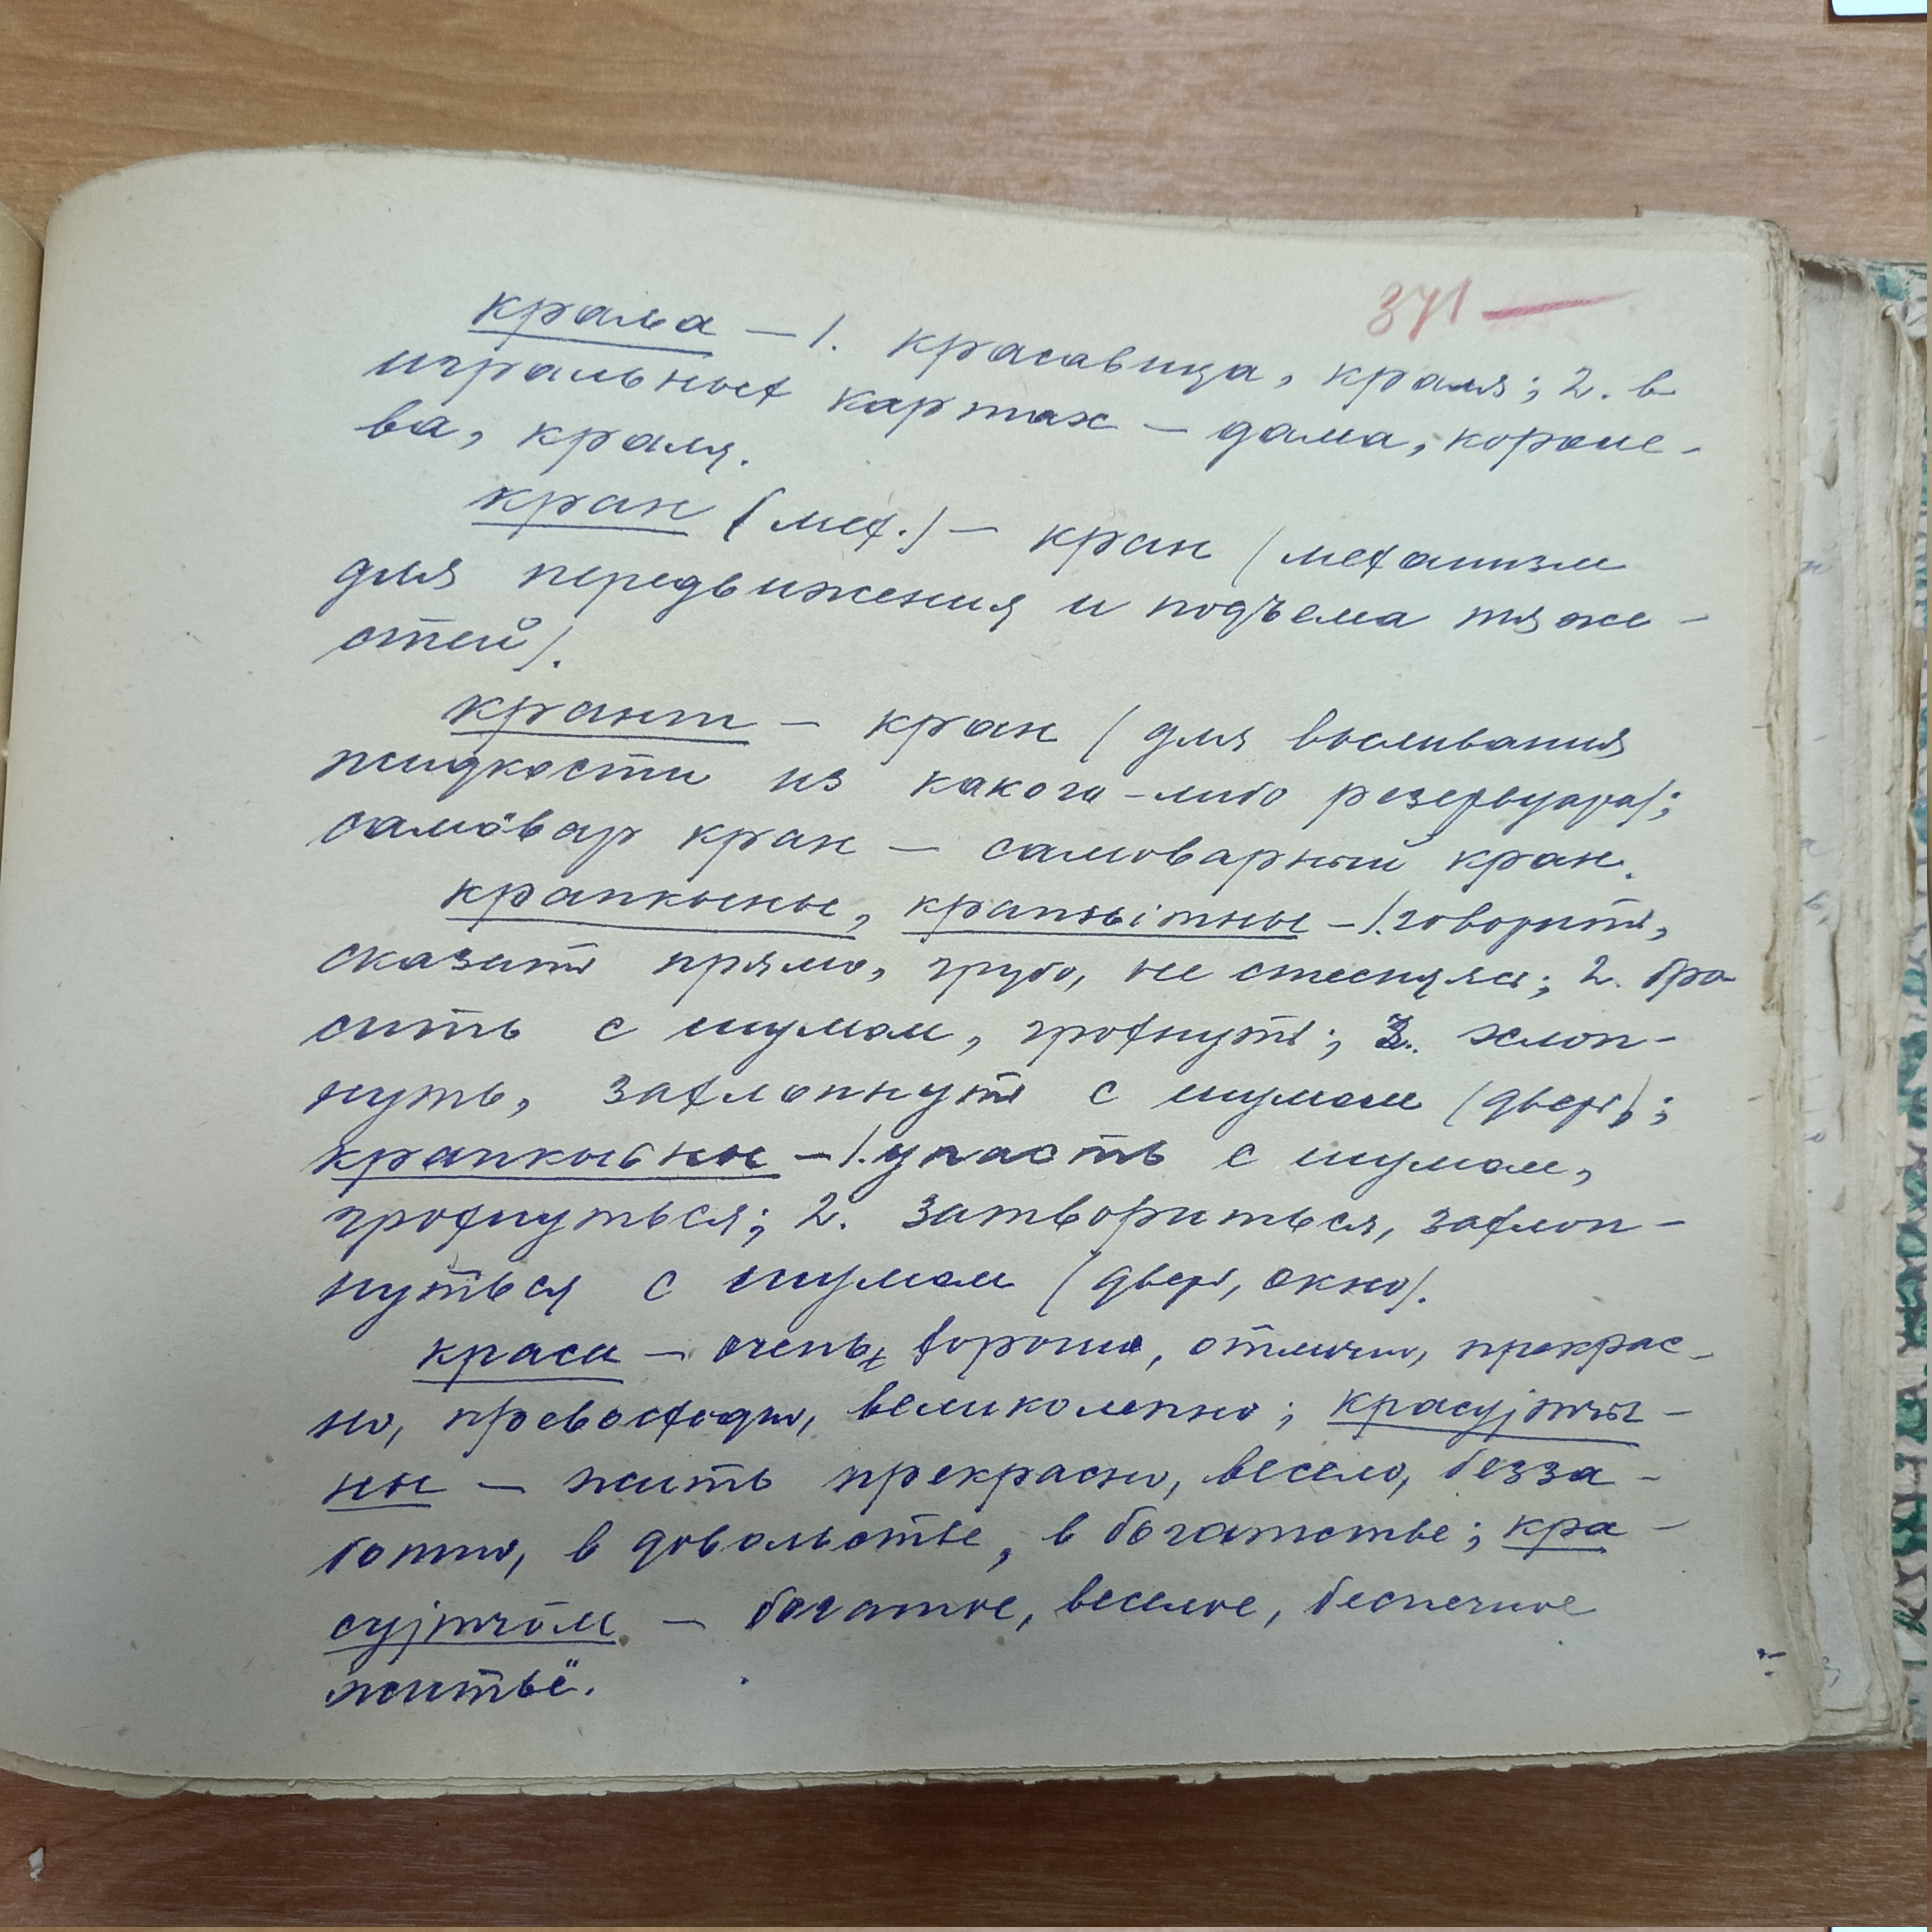 371 —
крала — 1. красавица, краля; 2. в
игральных картах — дама, короле-
ва, краля.
кран (мех.) — кран (механизм
для передвижения и подъема тяже-
стей).
крант — кран (для выливания
жидкости из какого-либо резервуара);
самӧвар кран — самоварный кран.
крапкыны, крапкӧтны — 1. говорить,
сказать прямо, грубо, не стесняясь; 2. бро-
сить с шумом, грохнуть; 3. хлоп-
нуть, захлопнуть с шумом (дверь);
крапкысьны — 1. упасть с шумом,
грохнуться; 2. затвориться, захлоп-
нуться с шумом (дверь, окно).
краса — очень хорошо, отлично, прекрас-
но, превосходно, великолепно; красуjтчы-
ны — жить прекрасно, весело, безза-
ботно, в довольстве, в богатстве; кра-
суjтчӧм — богатое, веселое, беспечное
житьё.